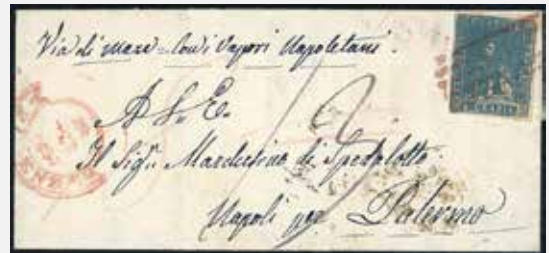 Via di mare = Coi Vapori Napoletani.
A S. E.
Il Sigr. Marchesino di Spedalotto
Napoli per Palermo